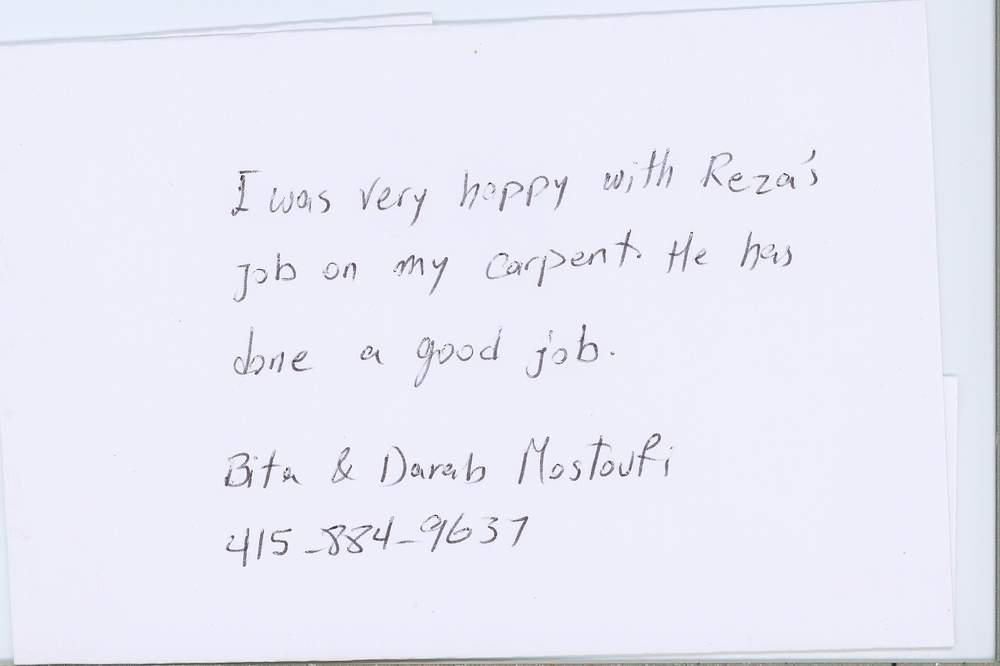 I was very happy with Reza's
job on my carpent. He has
done a good job.
Bita & Darab Mostoufi
415-884-9637